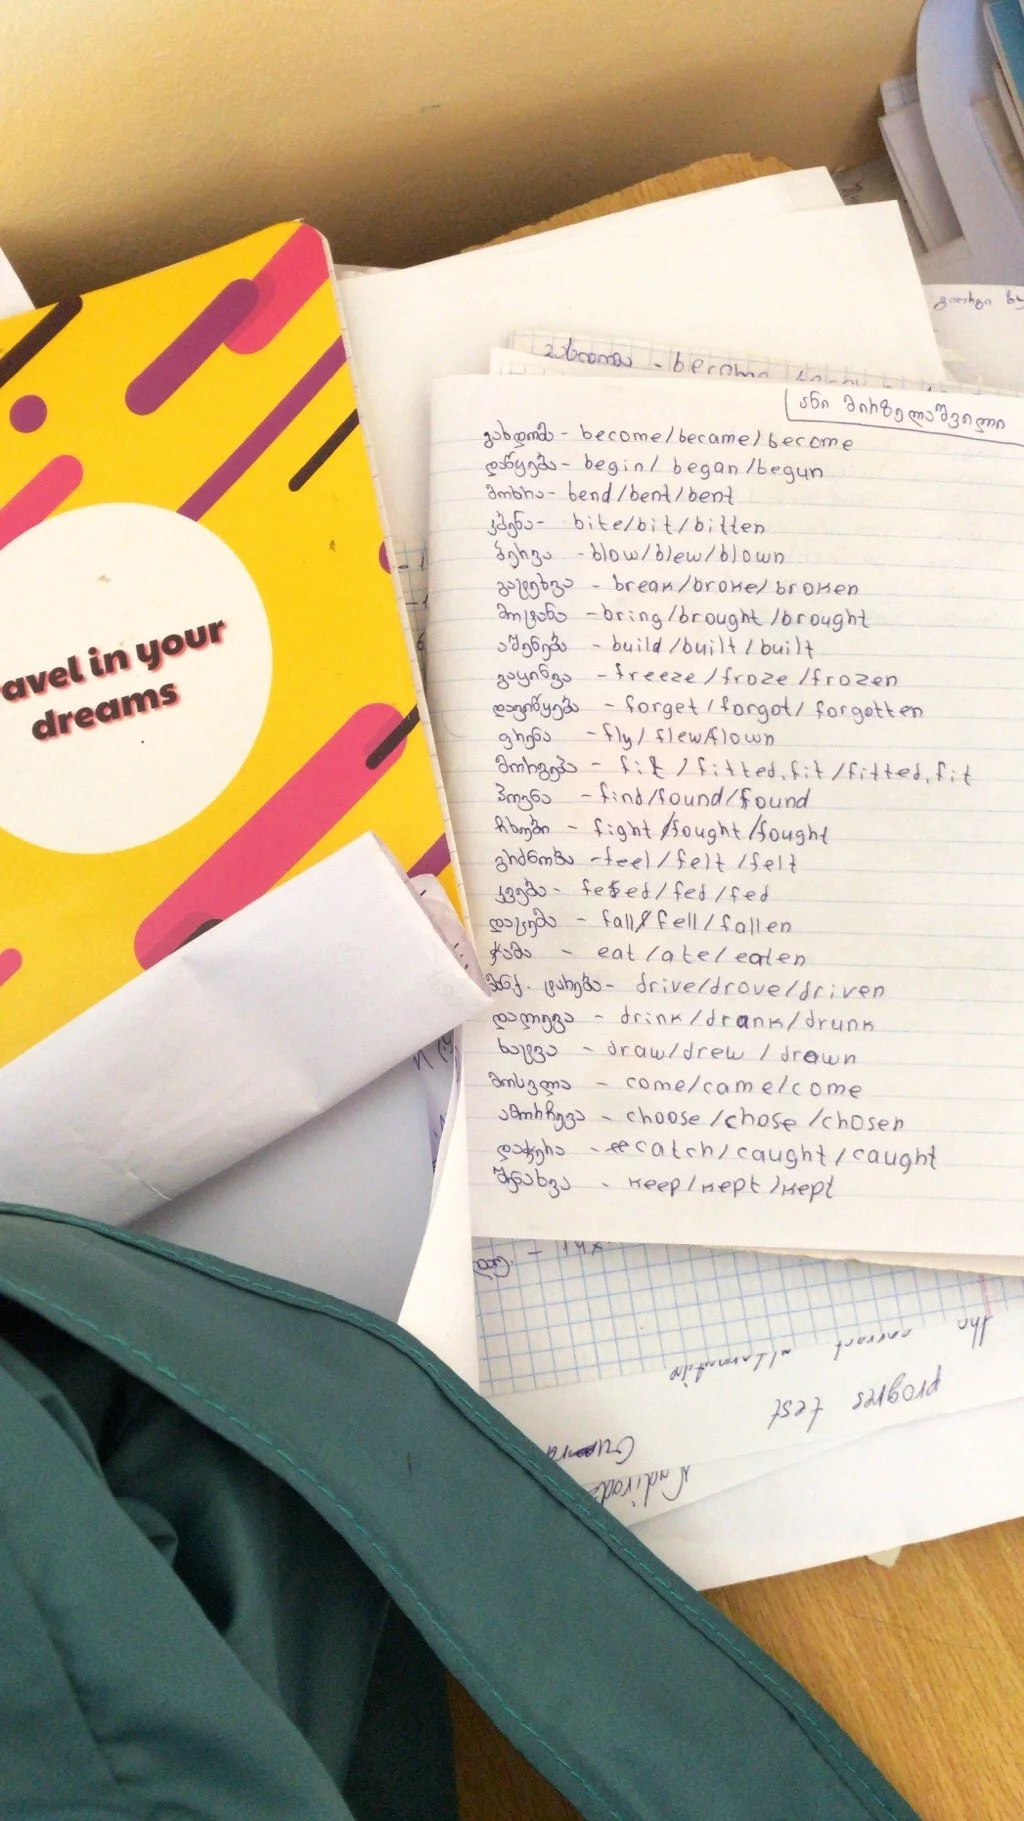 avel in your
dreams
- become
ანი მირზელაშვილი
გახდომა - become/became/become
დაწყება - begin/ began/begun
მოხრა - bend/bent/bent
კბენა - bite/bit/bitten
ბერვა - blow/blew/blown
გატეხვა - break/broke/broken
მოტანა - bring/brought/brought
აშენება - build/built/built
გაყინვა - freeze/froze/frozen
დავიწყება - forget/forgot/forgotten
ფრენა - fly/flew/flown
მორგება - fit/fitted,fit/fitted,fit
პოვნა - find/found/found
ჩხუბი - fight/fought/fought
გრძნობა - feel/felt/felt
კვება - feed/fed/fed
დაცემა - fall/fell/fallen
ჭამა - eat/ate/eaten
მანქ. ტარება - drive/drove/driven
დალევა - drink/drank/drunk
ხატვა - draw/drew/drawn
მოსვლა - come/came/come
ამორჩევა - choose/chose/chosen
დაჭერა - catch/caught/caught
შენახვა - keep/kept/kept
the correct alternative
progres test